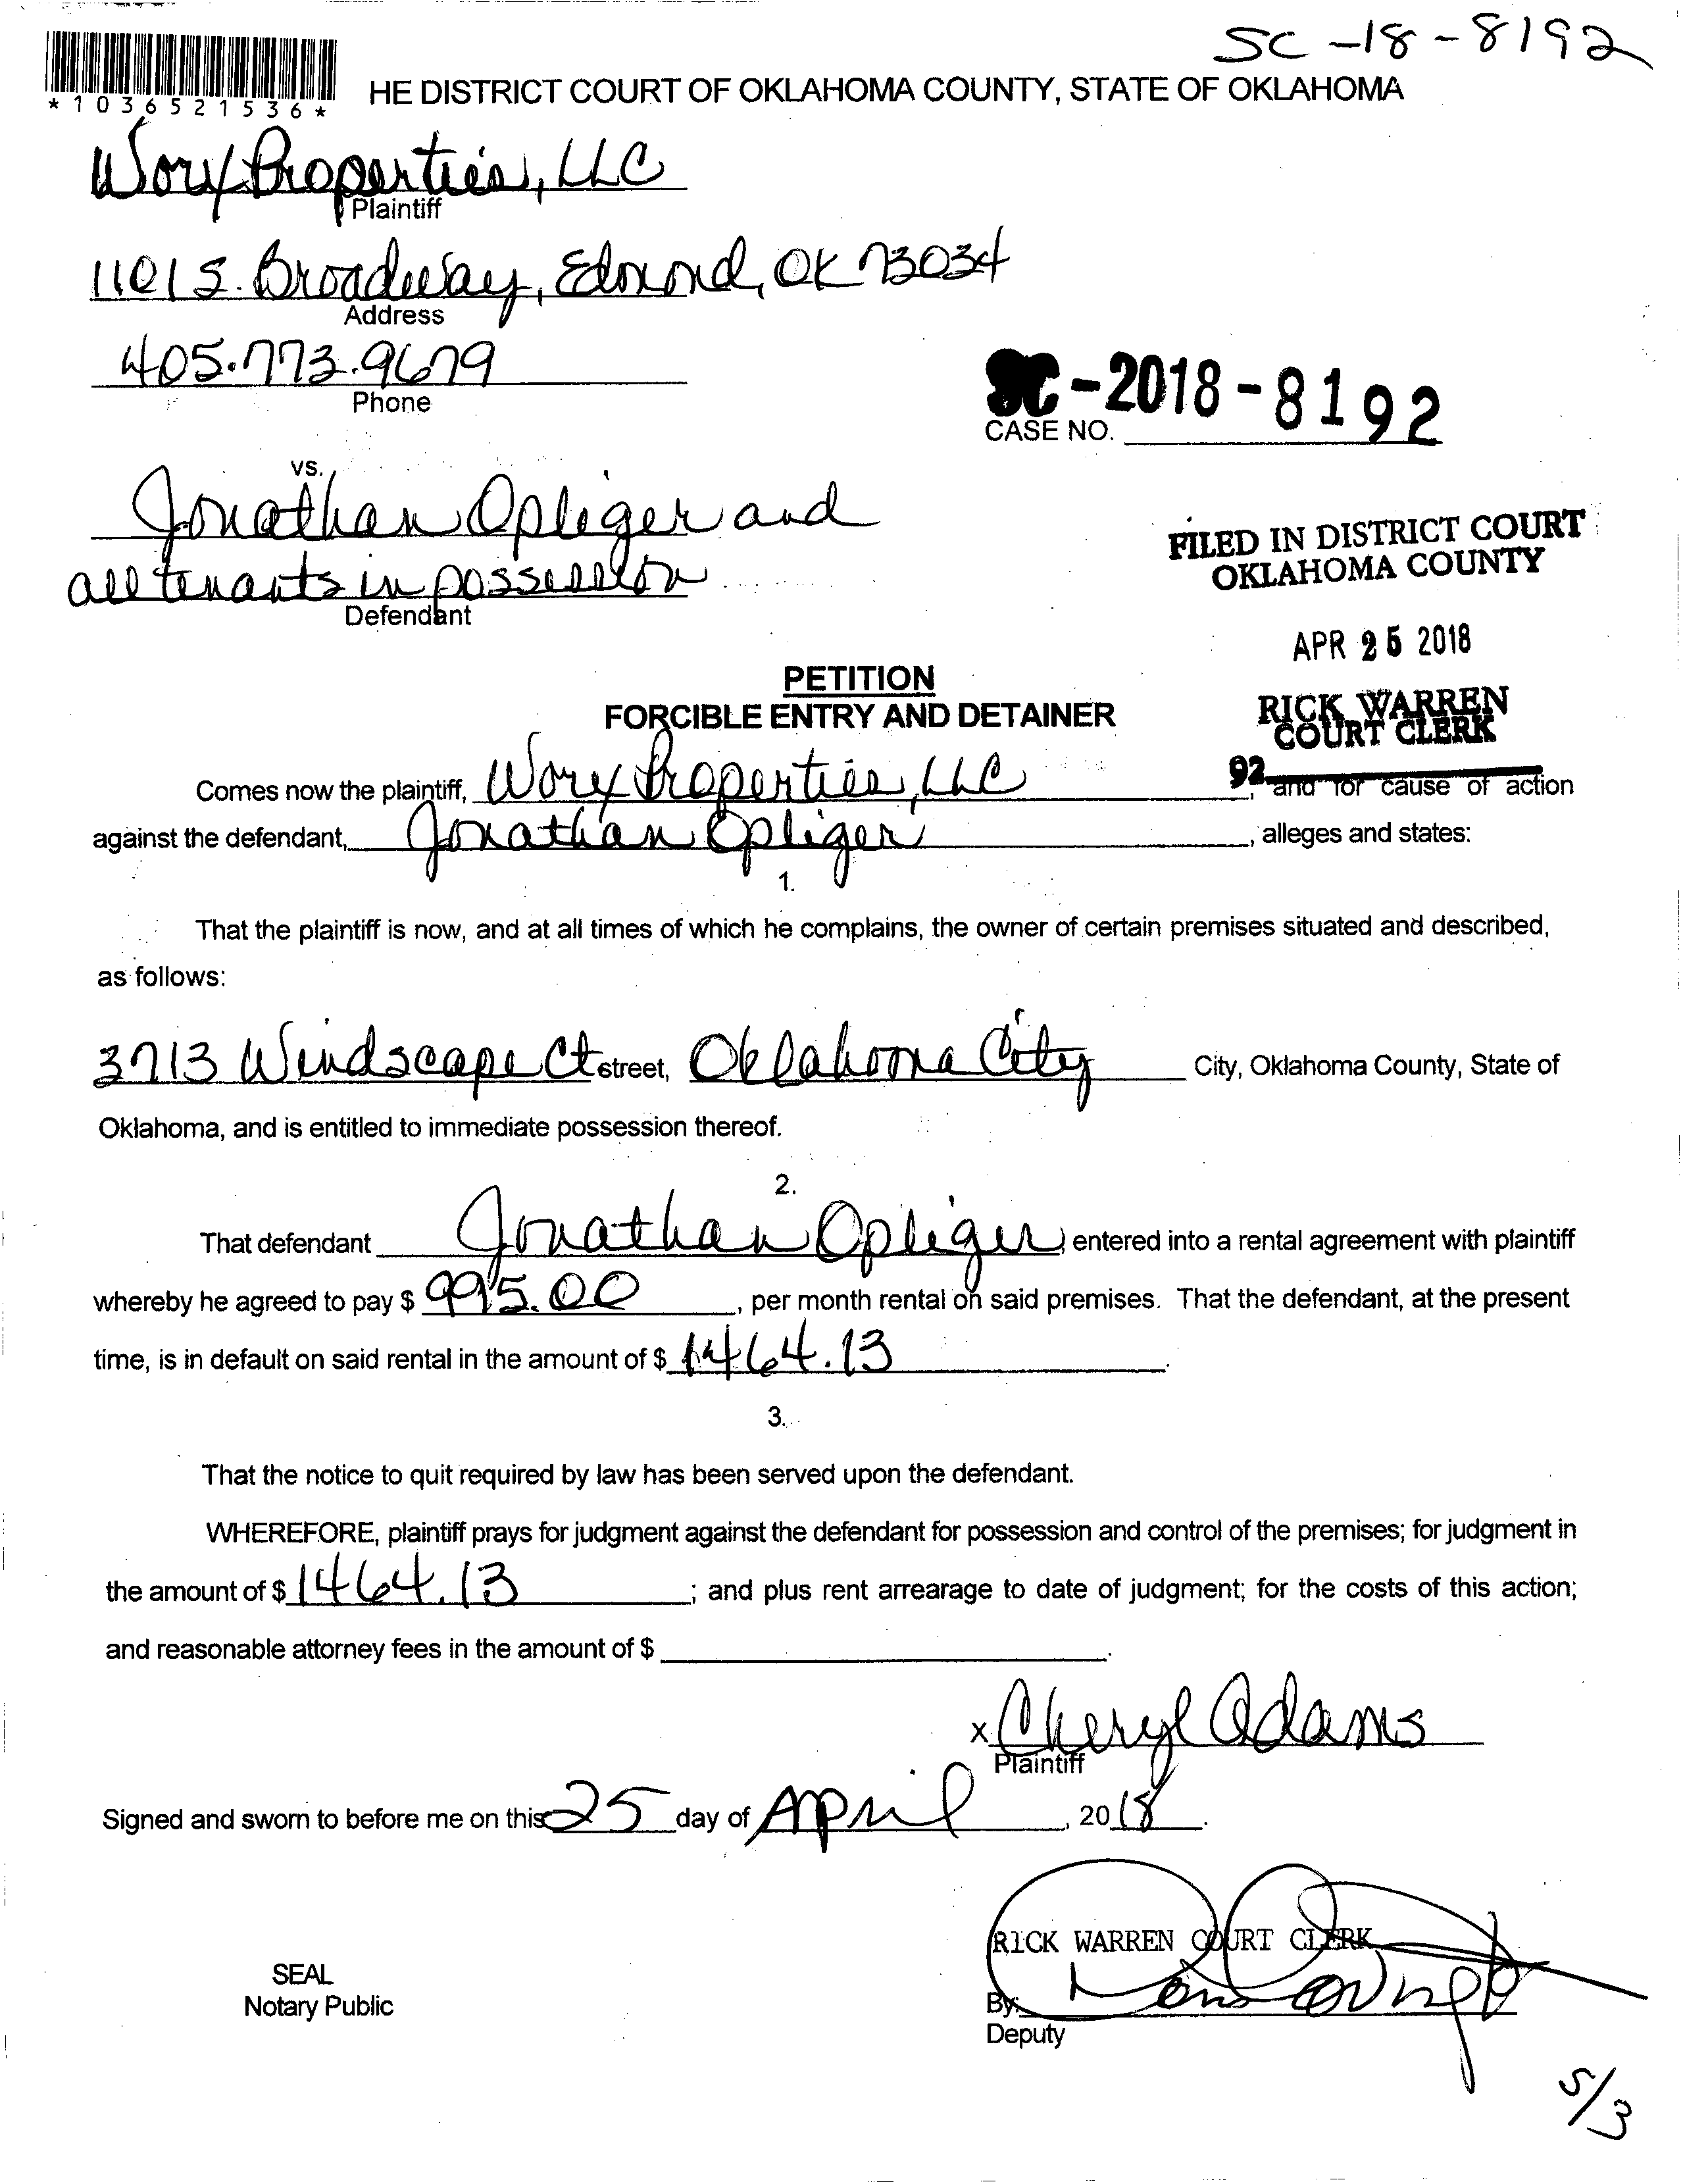 SC-18-8192
*1036521536*
HE DISTRICT COURT OF OKLAHOMA COUNTY, STATE OF OKLAHOMA
Worx Properties, LLC
Plaintiff
1101 S. Broadway, Edmond, OK 73034
Address
405.773.9679
Phone
SC-2018-8192
CASE NO.
vs.
Jonathan Opliger and
all tenants in possession
Defendant
FILED IN DISTRICT COURT
OKLAHOMA COUNTY
APR 25 2018
RICK WARREN
COURT CLERK
92
PETITION
FORCIBLE ENTRY AND DETAINER
Comes now the plaintiff, Worx Properties, LLC, and for cause of action
against the defendant, Jonathan Opliger, alleges and states:
1.
That the plaintiff is now, and at all times of which he complains, the owner of certain premises situated and described,
as follows:
3713 Windscape Ct street, Oklahoma City City, Oklahoma County, State of
Oklahoma, and is entitled to immediate possession thereof.
2.
That defendant Jonathan Opliger, entered into a rental agreement with plaintiff
whereby he agreed to pay $ 995.00, per month rental on said premises. That the defendant, at the present
time, is in default on said rental in the amount of $ 1464.13.
3.
That the notice to quit required by law has been served upon the defendant.
WHEREFORE, plaintiff prays for judgment against the defendant for possession and control of the premises; for judgment in
the amount of $ 1464.13; and plus rent arrearage to date of judgment; for the costs of this action;
and reasonable attorney fees in the amount of $ .
x Cheryl Adams
Plaintiff
Signed and sworn to before me on this 25 day of April, 2018.
RICK WARREN COURT CLERK
SEAL
Notary Public
By:
Deputy
5/3